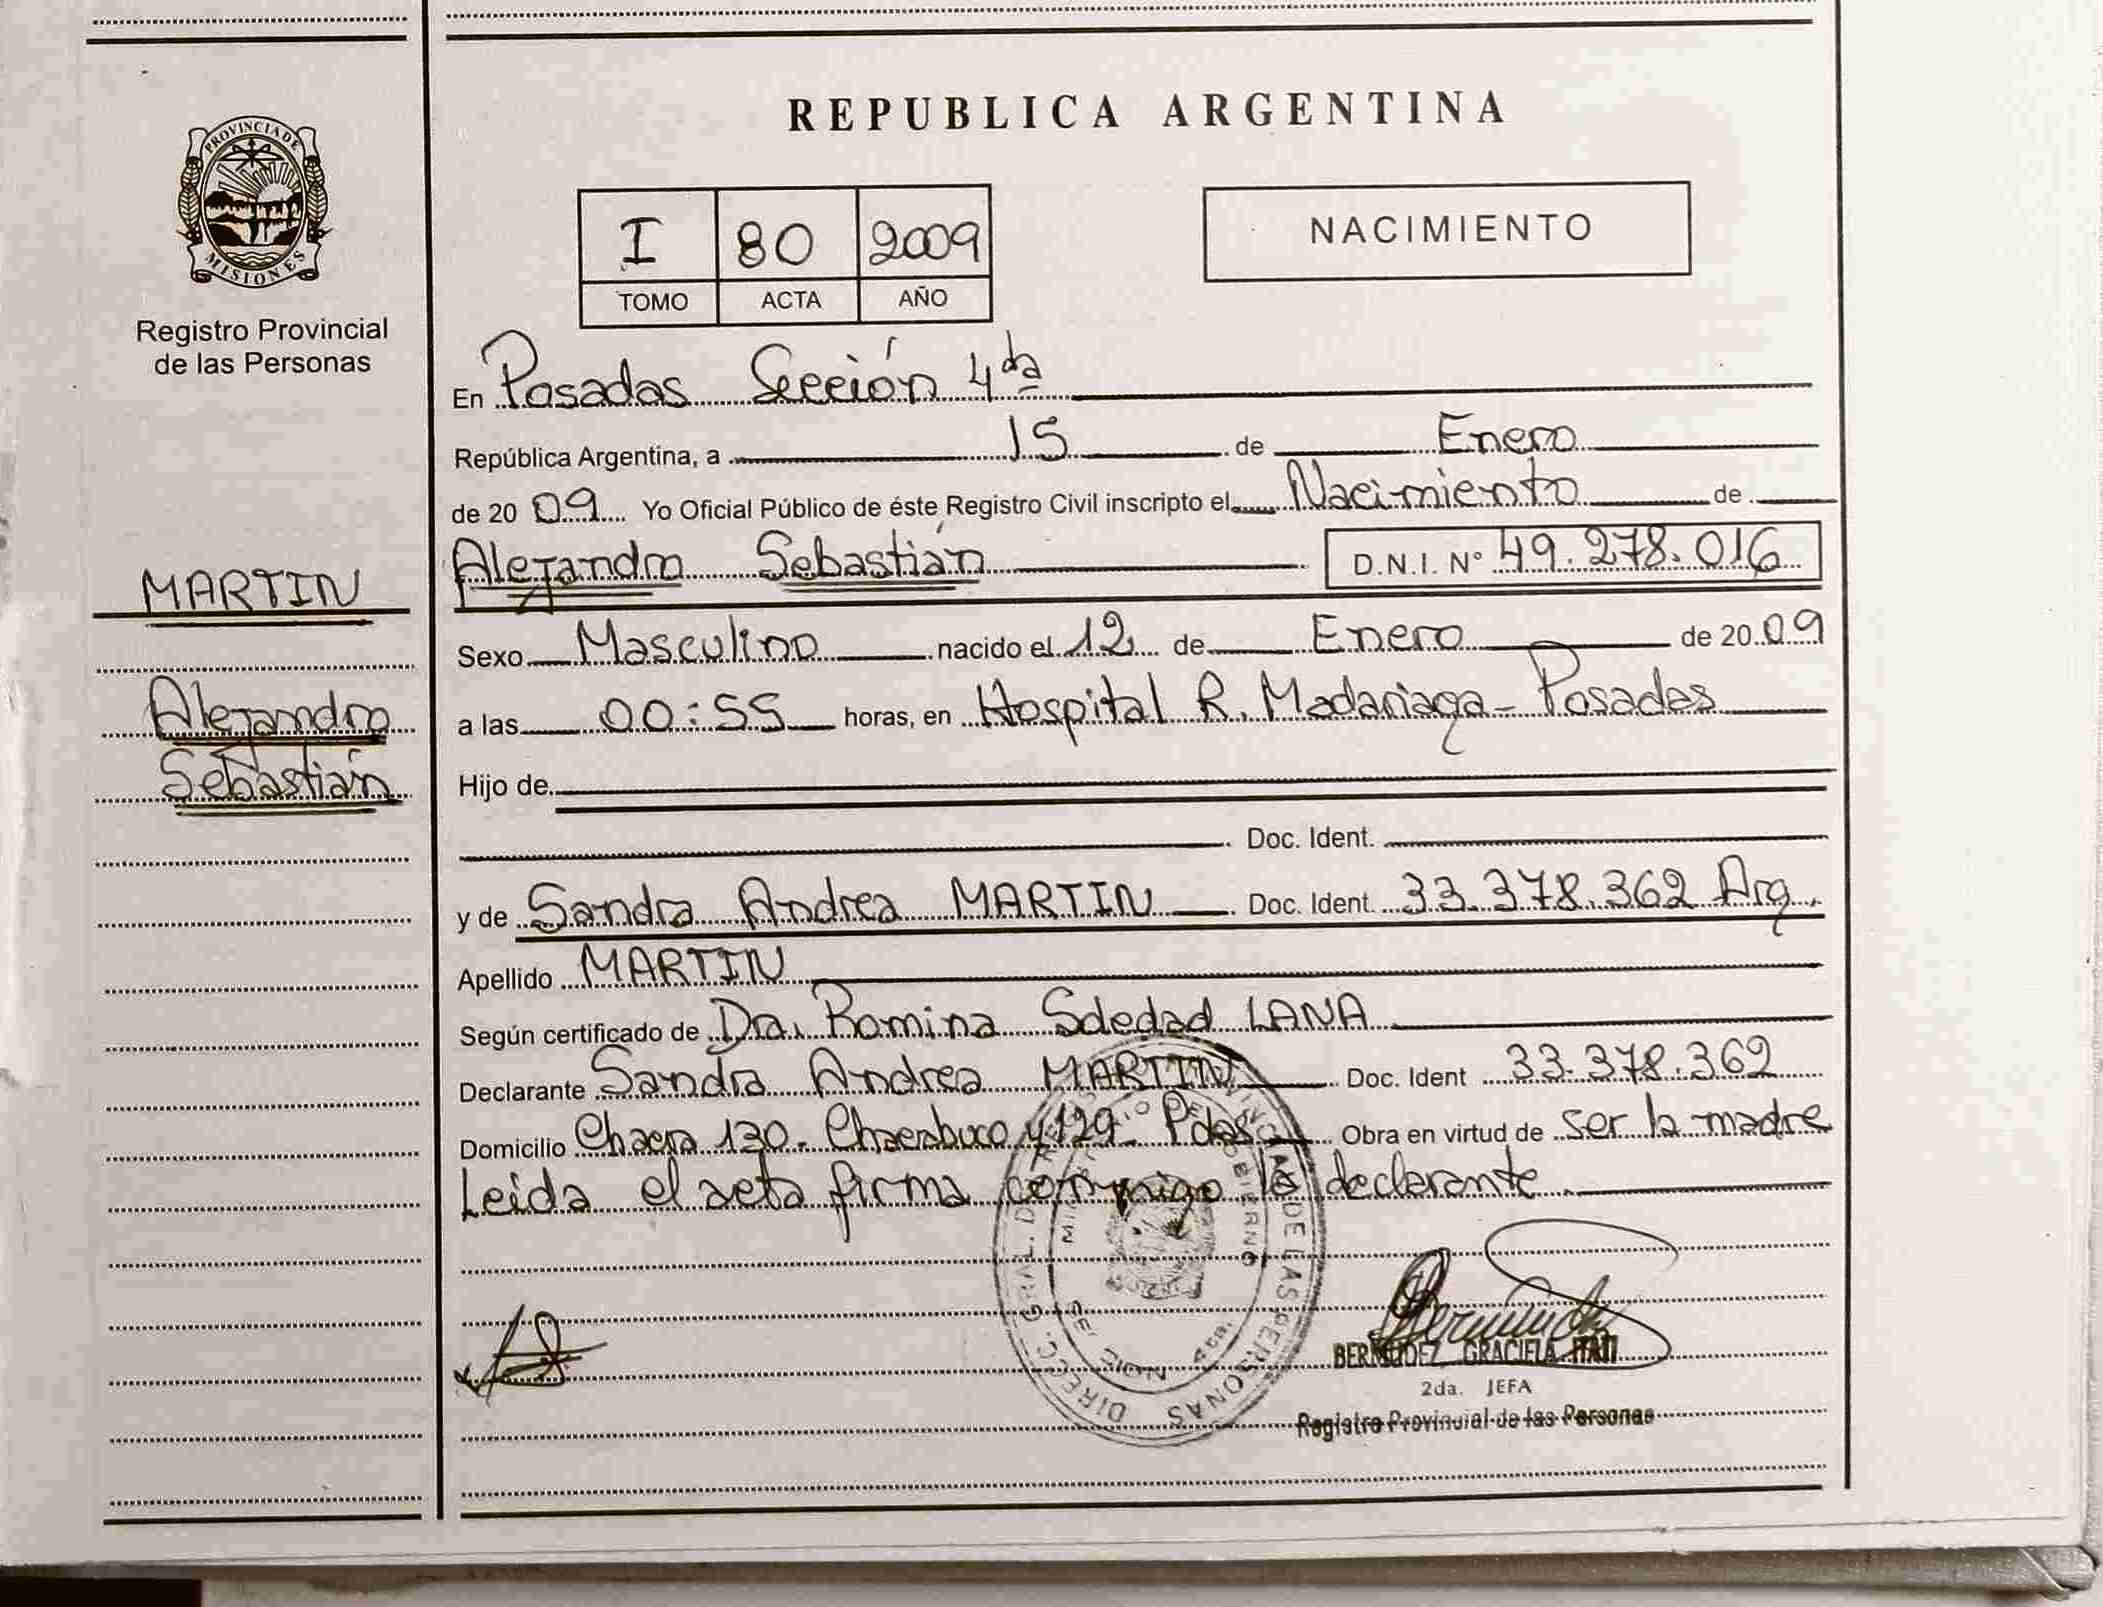 PROVINCIA DE
MISIONES
Registro Provincial
de las Personas
MARTIN
Alejandro
Sebastián
REPUBLICA ARGENTINA
I 80 2009
TOMO ACTA AÑO
NACIMIENTO
En Posadas Sección 4da
República Argentina, a 15 de Enero
de 20 09 Yo Oficial Público de éste Registro Civil inscripto el Nacimiento de
Alejandro Sebastián D.N.I. N° 49.278.016
Sexo Masculino nacido el 12 de Enero de 20 09
a las 00:55 horas, en Hospital R. Madariaga - Posadas
Hijo de
Doc. Ident.
y de Sandra Andrea MARTIN Doc. Ident. 33.378.362 Arg.
Apellido MARTIN
Según certificado de Dra. Romina Soledad LANA
Declarante Sandra Andrea MARTIN Doc. Ident 33.378.362
Domicilio Chacra 130. Chacabuco y 129 - Pdas Obra en virtud de ser la madre
Leida el acta firma conmigo la declarante
DIRECC. GRAL. DE LAS PERSONAS
BERMUDEZ GRACIELA ITATI
2da. JEFA
Registro Provincial de las Personas